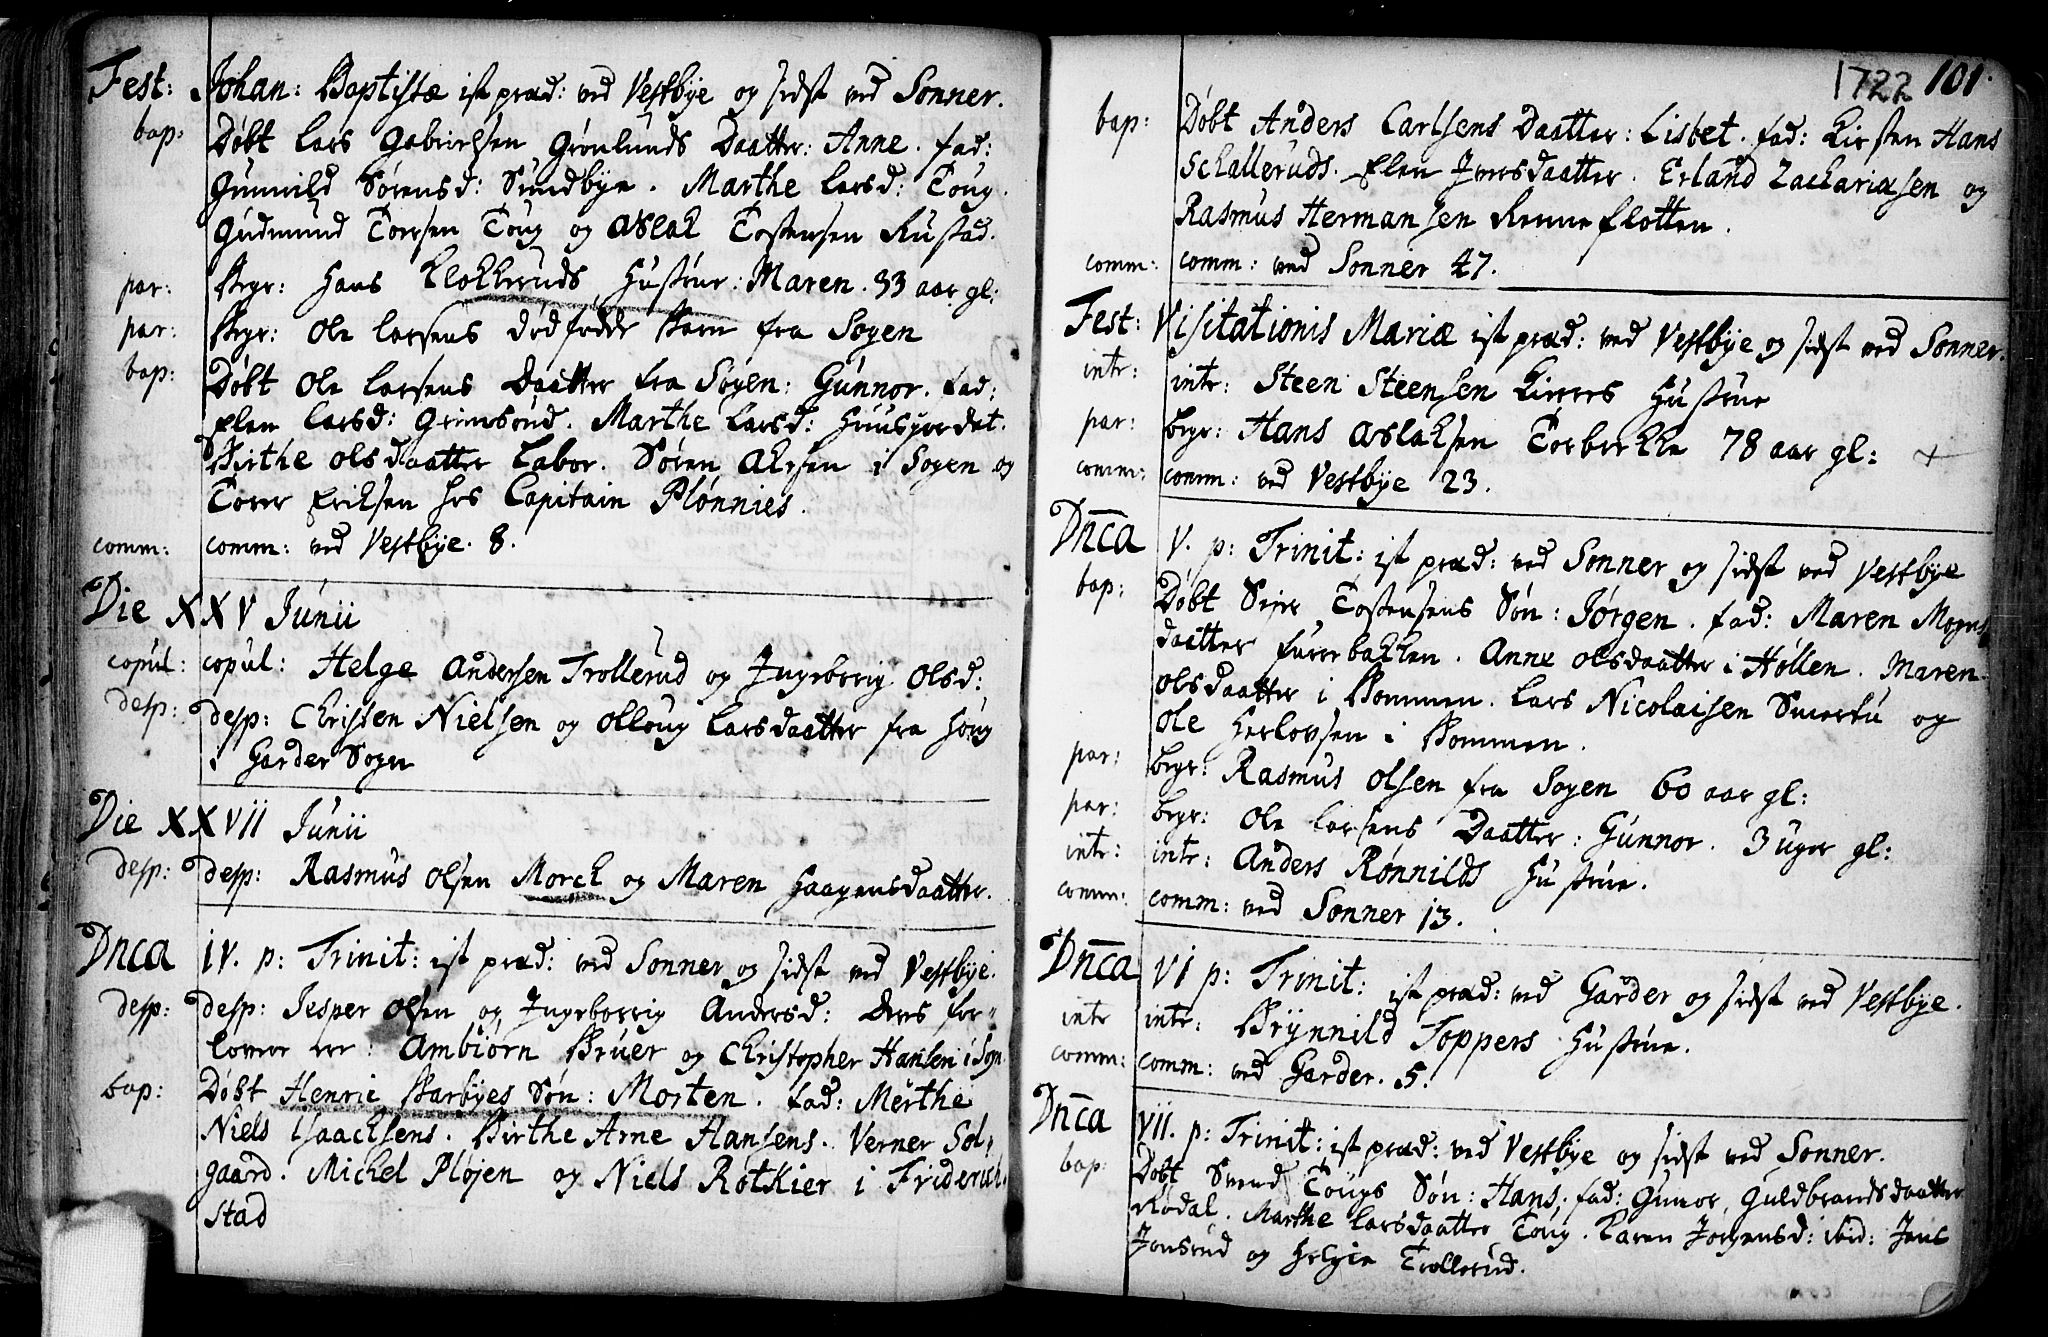 Fest: Johan: Baptistæ ist præd: ved Vestbÿe og sidst ved Sonner.
bap: Døbt Lars Gabrielsen Grønlunds Daatter: Anne. fad:
Gunnild Sørensd: Sundbÿe. Marthe Larsd: Toug.
Gudmund Torersen Toug og Aslak Tostensen Rustad.
par: Begr: Hans Klokkeruds Hustrue: Maren. 33 aar gl:
par: Begr: Ole Larsens dødfødde Barn fra Sogen
bap: Døbt Ole Larsens Daatter fra Sogen: Gunnor. fad:
Elen Larsd: Grimsrud. Marthe Larsd: Huusgierdet.
Birthe Olsdaatter Labor. Søren Akesen i Sogen og
Torer Eriksen hos Capitain Plønnies.
comm: comm: ved Vestbÿe. 8.
Die XXV Junii
copul: copul: Helge Andersen Trollerud og Ingeborrig Olsd:
desp: desp: Christen Nielsen og Olloug Larsdaatter fra Houg
i Garder Sogn
Die XXVII Junii
desp: desp: Rasmus Olsen Morck og Maren Haagensdaatter.
Dn̄ca IV. p: Trinit: ist præd: ved Sonner og sidst ved Vestbÿe.
desp: desp: Jesper Olsen og Ingeborrig Andersd: Deres for-
lovere ere: Ambiørn Bruer og Christopher Hansen i Son.
bap: Døbt Henric Barbÿes Søn: Morten. fad: Merthe
Niels Isaachsens. Birthe Arne Hansens. Verner Søl,
gaard. Michel Pløjen og Niels Rotkier i Friderich.
stad
1722 101.
bap: Døbt Anders Carlsens Daatter: Lisbet. fad: Kirsten Hans
Schalleruds. Elen Iversdaatter. Erland Zachariasen og
Rasmus Hermansen Renneflotten.
comm: comm: ved Sonner 47.
Fest: Visitationis Mariæ ist præd: ved Vestbÿe og sidst ved Sonner.
intr: intr: Steen Steensen Kiœrs Hustrue
par: begr: Hans Aslaksen Torbekke 78 aar gl: +
comm: comm: ved Vestbÿe 23.
Dn̄ca V. p: Trinit: ist præd: ved Sonner og sidst ved Vestbÿe
bap: Døbt Siver Tostensens Søn: Jørgen. fad: Maren Mogns
daatter furrebakken. Anne Olsdaatter i Høllen. Maren
Olsdaatter i Bommen. Lars Nicolaisen Smertu og
Ole Herlovsen i Bommen.
par: begr: Rasmus Olsen fra Sogen 60 aar gl:
par: begr: Ole Larsens Daatter: Gunnor. 3 uger gl:
intr: intr: Anders Rønnilds Hustrue.
comm: comm: ved Sonner 13.
Dn̄ca VI p: Trinit: ist præd: ved Garder og sidst ved Vestbÿe.
intr intr: Brÿnnild Toppers Hustrue.
comm: comm: ved Garder. 5.
Dn̄ca VII. p: Trinit: ist præd: ved Vestbÿe og sidst ved Sonner.
bap: Døbt Svend Tougs Søn: Hans. fad: Gunor, Guldbrandsdaatter
Rødal. Marthe Larsdaatter Toug. Karen Jørgensd: ibid: Jens
Jonsrud og Helgie Trollerud.